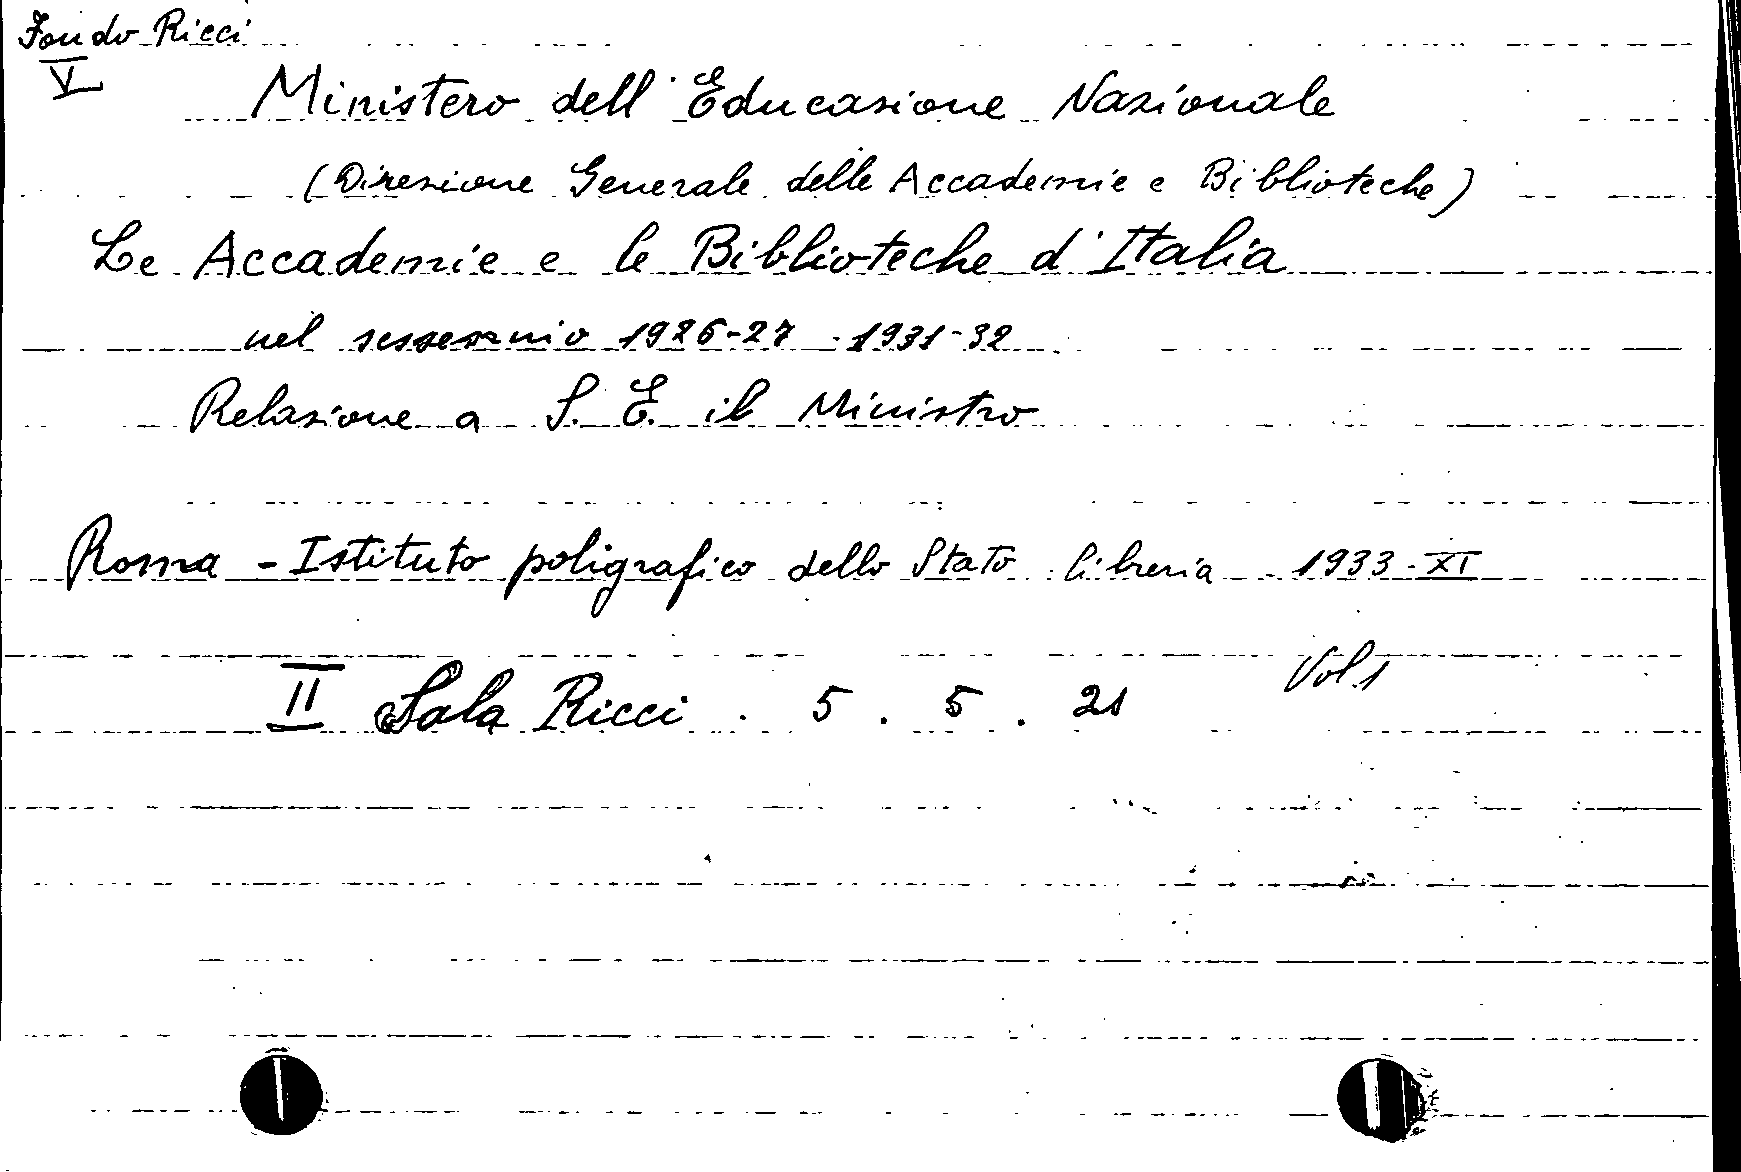 Fondo Ricci
V
Ministero dell'Educazione Nazionale
(Direzione Generale delle Accademie e Biblioteche)
Le Accademie e le Biblioteche d'Italia
nel sessennio 1926-27 - 1931-32
Relazione a S. E. il Ministro
Roma - Istituto poligrafico dello Stato libreria 1933-XI
Vol. 1
II Sala Ricci . 5 . 5 . 21